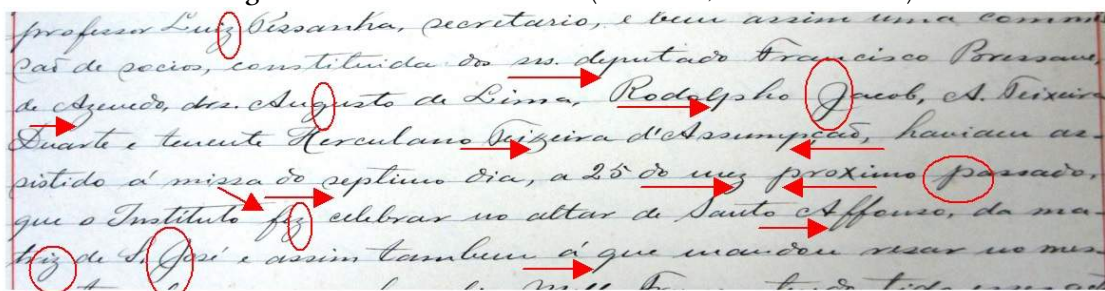 professor Luiz Pessanha, secretario, e bem assim uma commis
saõ de socios, constituida dos srs. deputado Francisco Bressane,
de Azevedo, drs. Augusto de Lima, Rodolpho Jacob, A. Teixeira
Duarte e tenente Herculano Teixeira d'Assumpçaõ, haviam as-
sistido á missa do septimo dia, a 25 do mez proximo passado,
que o Instituto fez celebrar no altar de Santo Affonso, da ma-
triz de S. José e assim tambem á que mandou resar no mes